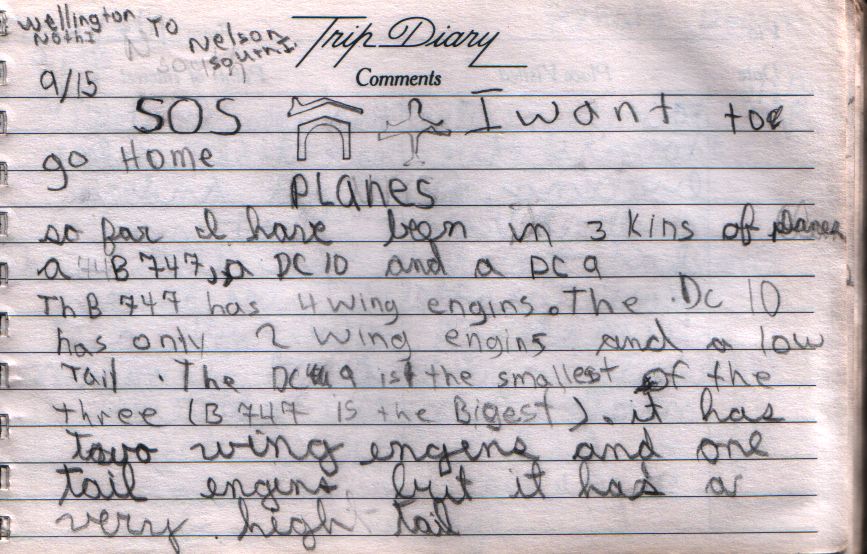 Wellington TO Nelson
Trip Diary
Comments
9/15
SOS I want to
go Home
PLANES
so far I have been in 3 kins of planes
a B 747, a DC 10 and a DC 9
Th B 747 has 4 wing engins. The DC 10
has only 2 wing engins and a low
Tail. The DC 9 is the smallest of the
three (B 747 is the Bigest). it has
towo wing engens and one
tail engens but it has a
very hight tail